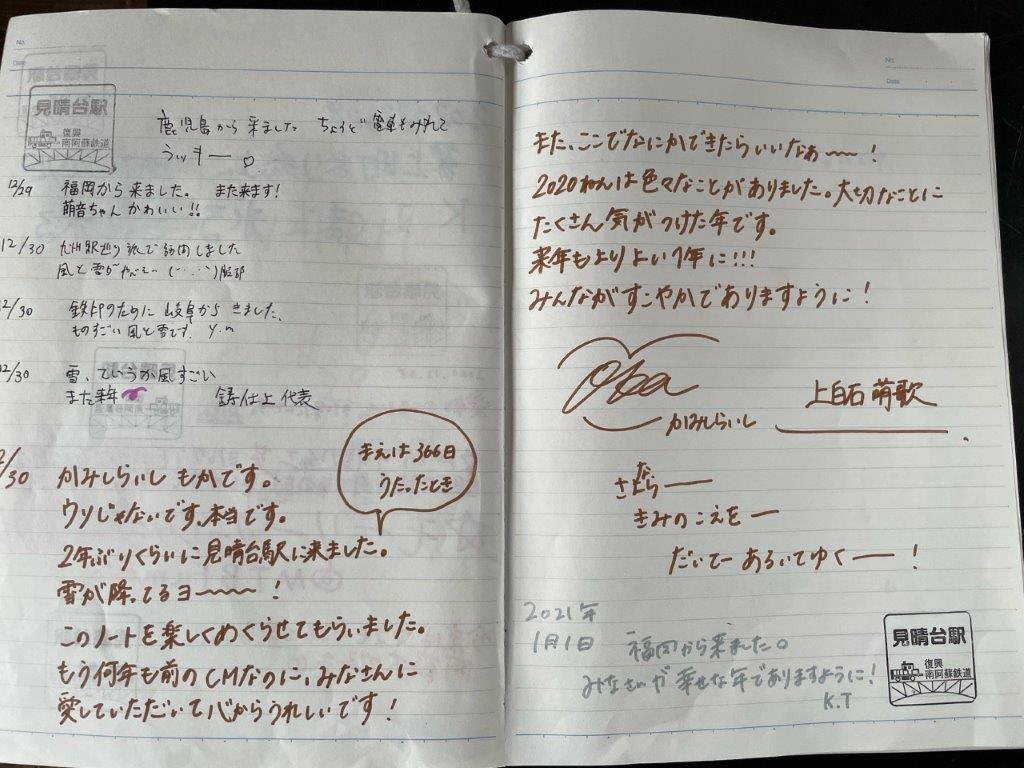 No.
Date
見晴台駅
復興
南阿蘇鉄道
鹿児島から来ました ちょうど電車もみれて
ラッキー。
12/29 福岡から来ました。 また来ます!
萌音ちゃん かわいい!!
12/30 九州駅巡り旅で訪問しました
風と雪がやべぇ
12/30 鉄印のために 岐阜から きました、
ものすごい風と雪です。 y.m
12/30 雪、ていうか風すごい
また来年
代表
12/30 かみしらいし もかです。
ウソじゃないです、本当です。
まえは366日
うたったとき
2年ぶりくらいに見晴台駅に来ました。
雪が降ってるヨ〜〜〜!
このノートを楽しくめくらせてもらいました。
もう何年も前のCMなのに、みなさんに
愛していただいて心からうれしいです!
No.
Date
また、ここでなにかできたらいいなぁ〜〜!
2020ねんは色々なことがありました。大切なことに
たくさん気がつけた年です。
来年もよりよい1年に!!!
みんながすこやかでありますように!
かみしらいし
上白石 萌歌
さよなら──
きみのこえを─
だいてーあるいてゆく──!
2021年
1月1日 福岡から来ました。
みなさんが 幸せな年でありますように!
K.T
見晴台駅
復興
南阿蘇鉄道